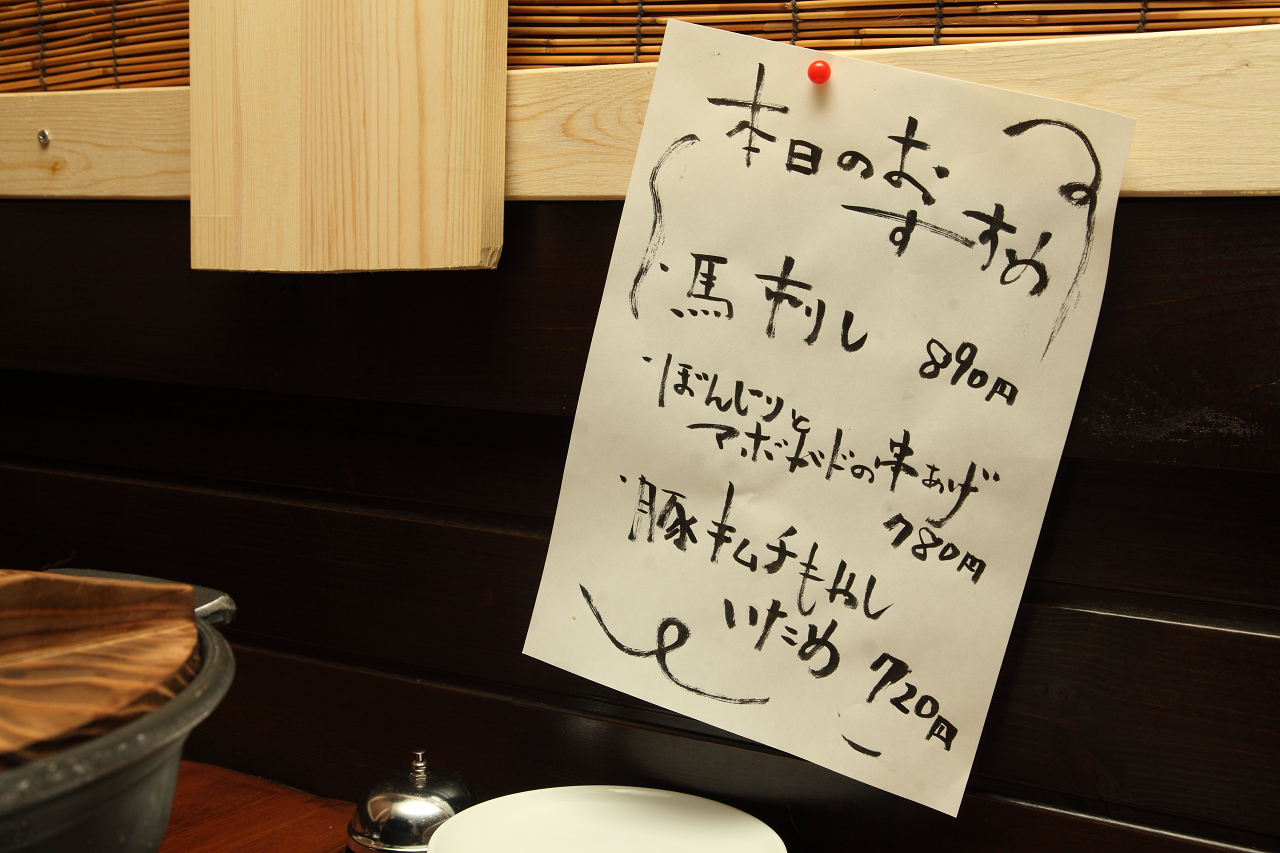 本日のお
すすめ
・馬刺し 890円
・ぼんじりと
アボガドの串あげ
780円
・豚キムチもやし
いため 720円